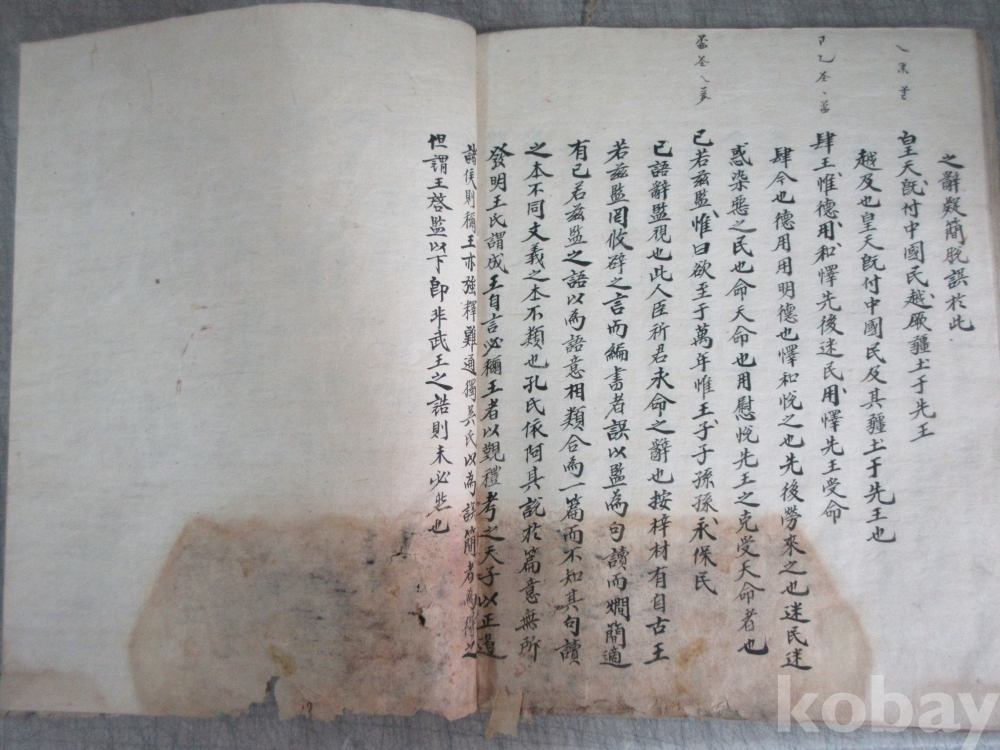 之辭疑簡脫誤於此
皇天旣付中國民越厥疆土于先王
越及也皇天旣付中國民及其疆土于先王也
肆王惟德用和懌先後迷民用懌先王受命
肆今也德用用明德也懌和悅之也先後勞來之也迷民迷
惑染惡之民也命天命也用慰悅先王之克受天命者也
已若玆監惟曰欲至于萬年惟王子子孫孫永保民
已語辭監視也此人臣祈君永命之辭也按梓材有自古王
若玆監罔攸辟之言而編書者誤以監爲句讀而爛簡適
有已若玆監之語以爲語意相類合爲一篇而不知其句讀
之本不同文義之本不類也孔氏依阿其說於篇意無所
發明王氏謂成王自言必稱王者以覲禮考之天子以正遏
諸侯則稱王亦强釋難通獨吳氏以爲誤簡者爲得之
但謂王啓監以下卽非武王之誥則未必然也
kobay